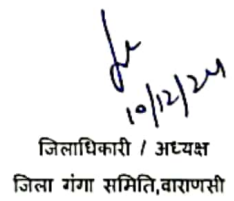 10/12/24
जिलाधिकारी / अध्यक्ष
जिला गंगा समिति,वाराणसी